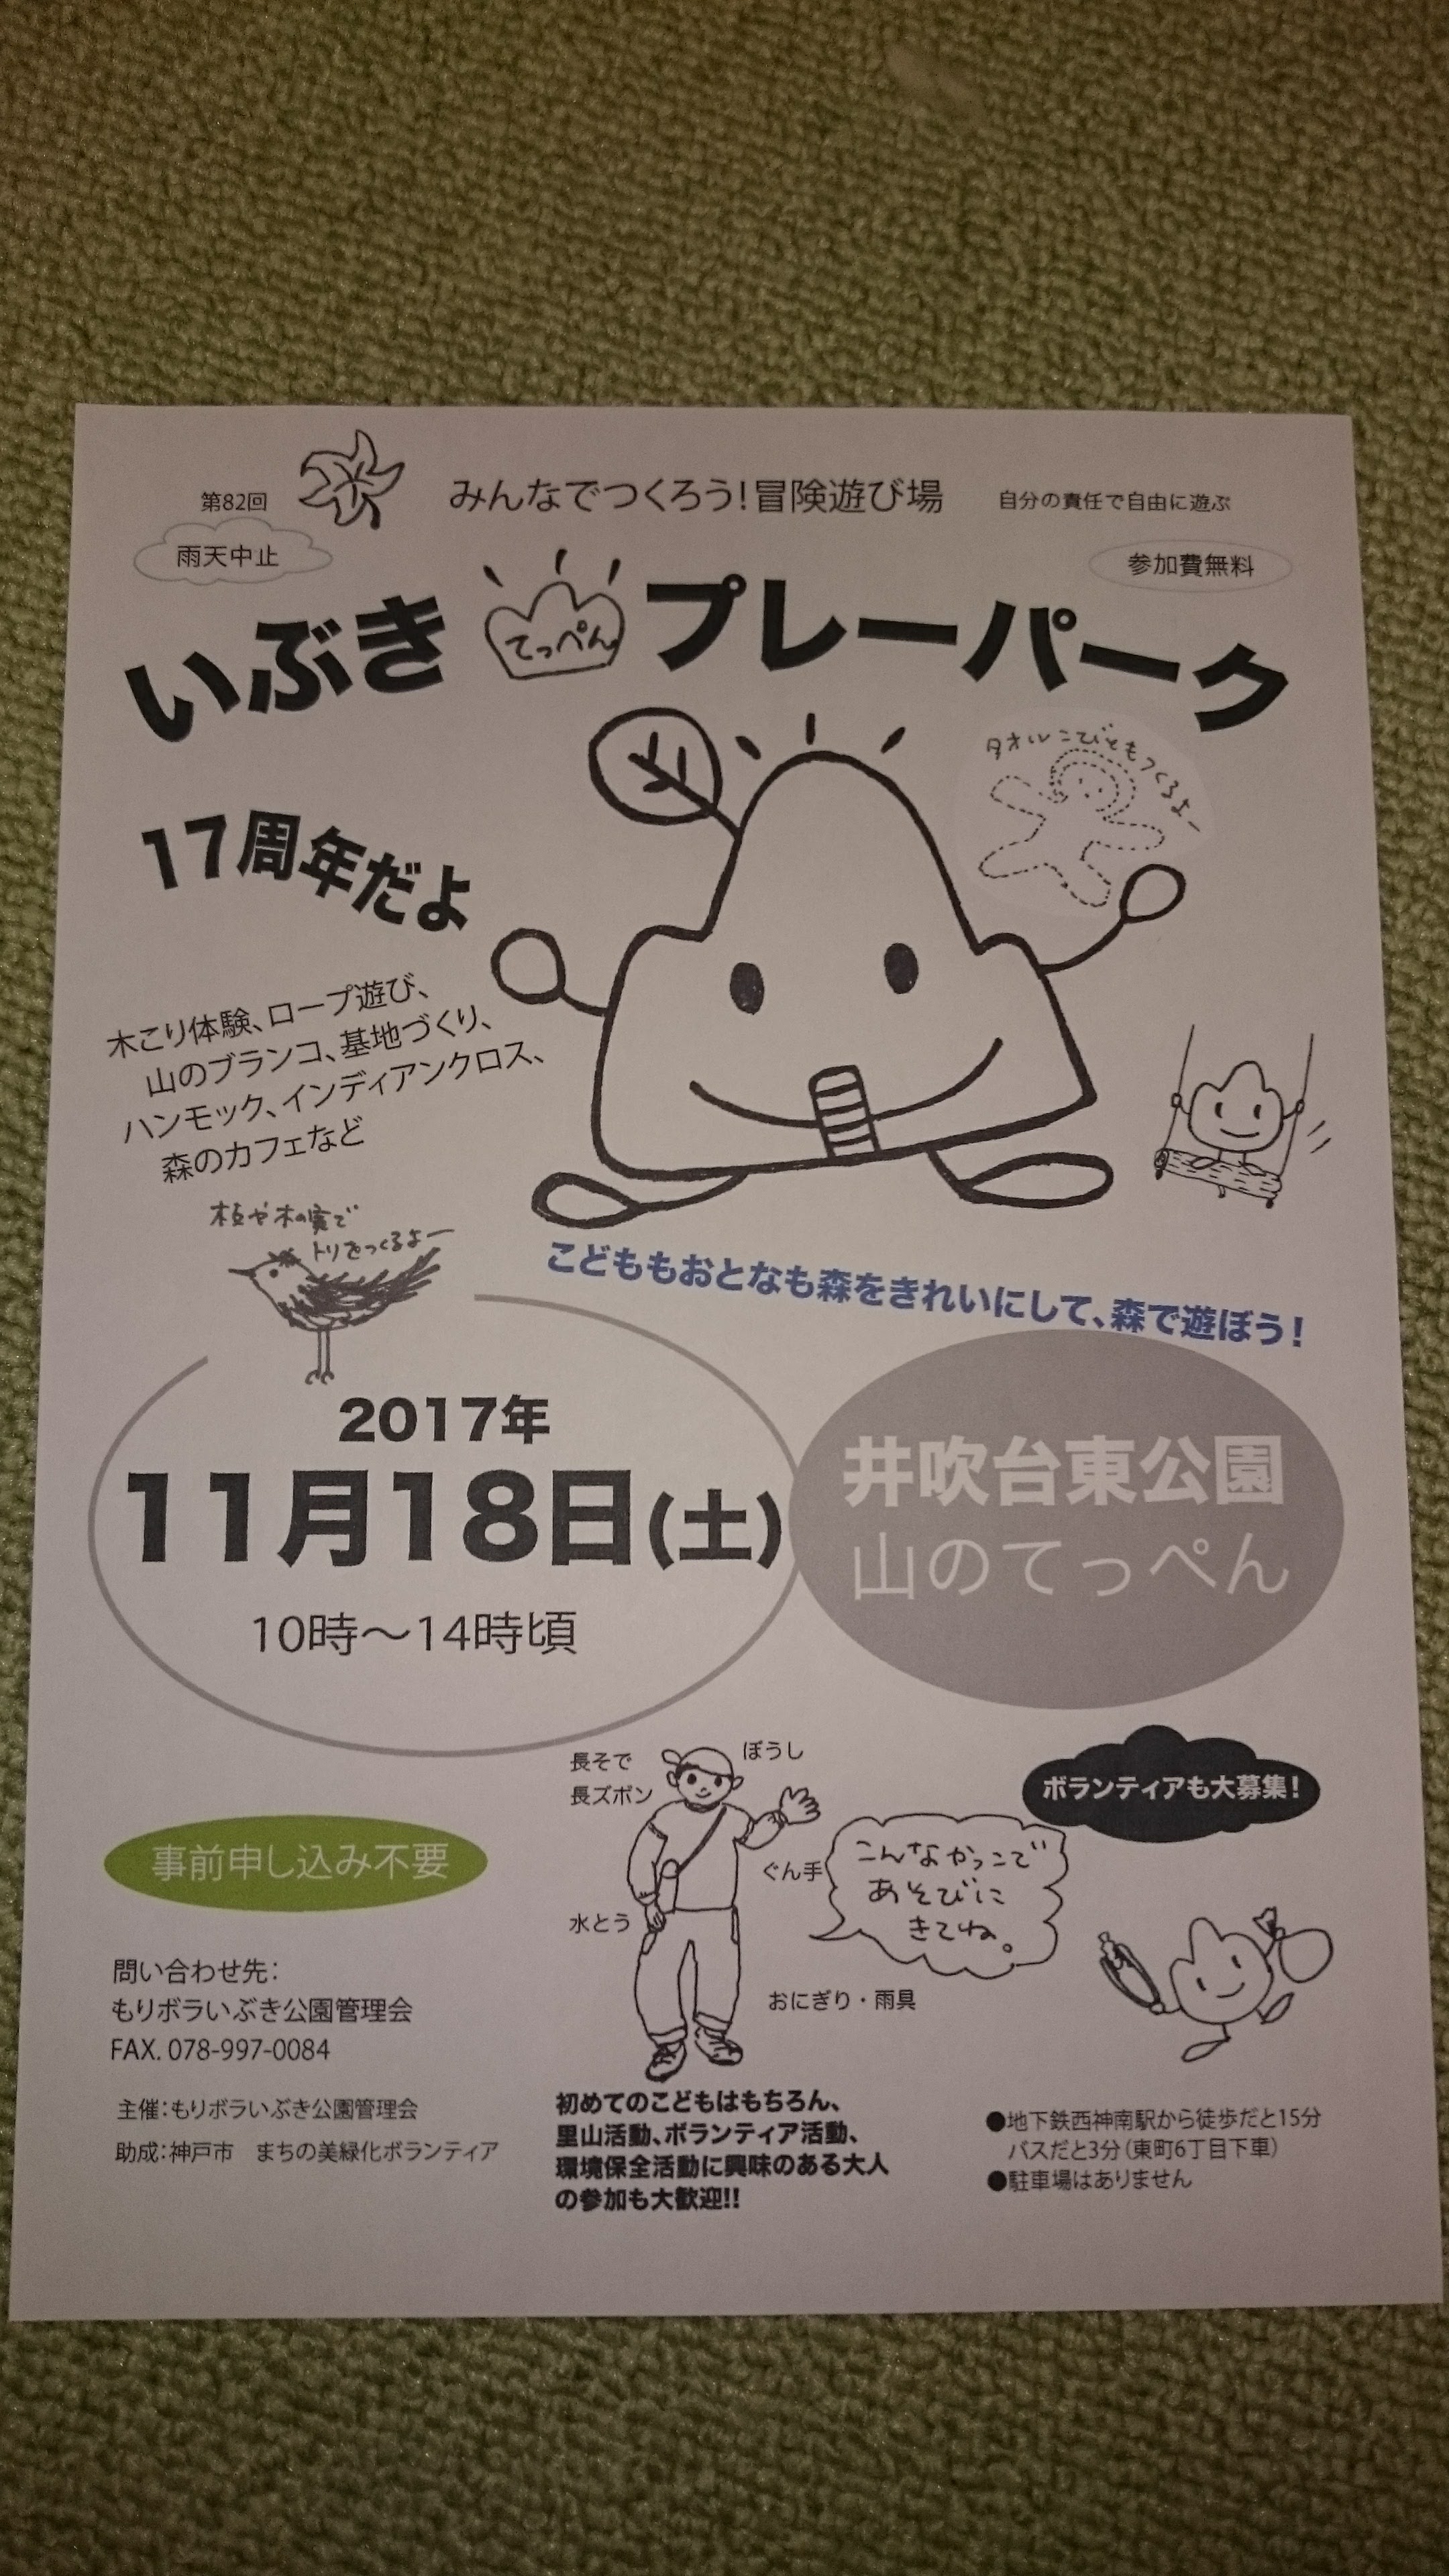 第82回
みんなでつくろう!冒険遊び場
自分の責任で自由に遊ぶ
雨天中止
参加費無料
いぶき
てっぺん
プレーパーク
タオルこびともつくるよー
17周年だよ
木こり体験、ロープ遊び、
山のブランコ、基地づくり、
ハンモック、インディアンクロス、
森のカフェなど
枝や木の実で
トリをつくるよー
こどももおとなも森をきれいにして、森で遊ぼう!
2017年
11月18日(土)
10時〜14時頃
井吹台東公園
山のてっぺん
長そで
長ズボン
ぼうし
ぐん手
水とう
おにぎり・雨具
こんなかっこで
あそびに
きてね。
ボランティアも大募集!
事前申し込み不要
問い合わせ先:
もりボラいぶき公園管理会
FAX. 078-997-0084
主催:もりボラいぶき公園管理会
助成:神戸市　まちの美緑化ボランティア
初めてのこどもはもちろん、
里山活動、ボランティア活動、
環境保全活動に興味のある大人
の参加も大歓迎!!
●地下鉄西神南駅から徒歩だと15分
バスだと3分(東町6丁目下車)
●駐車場はありません